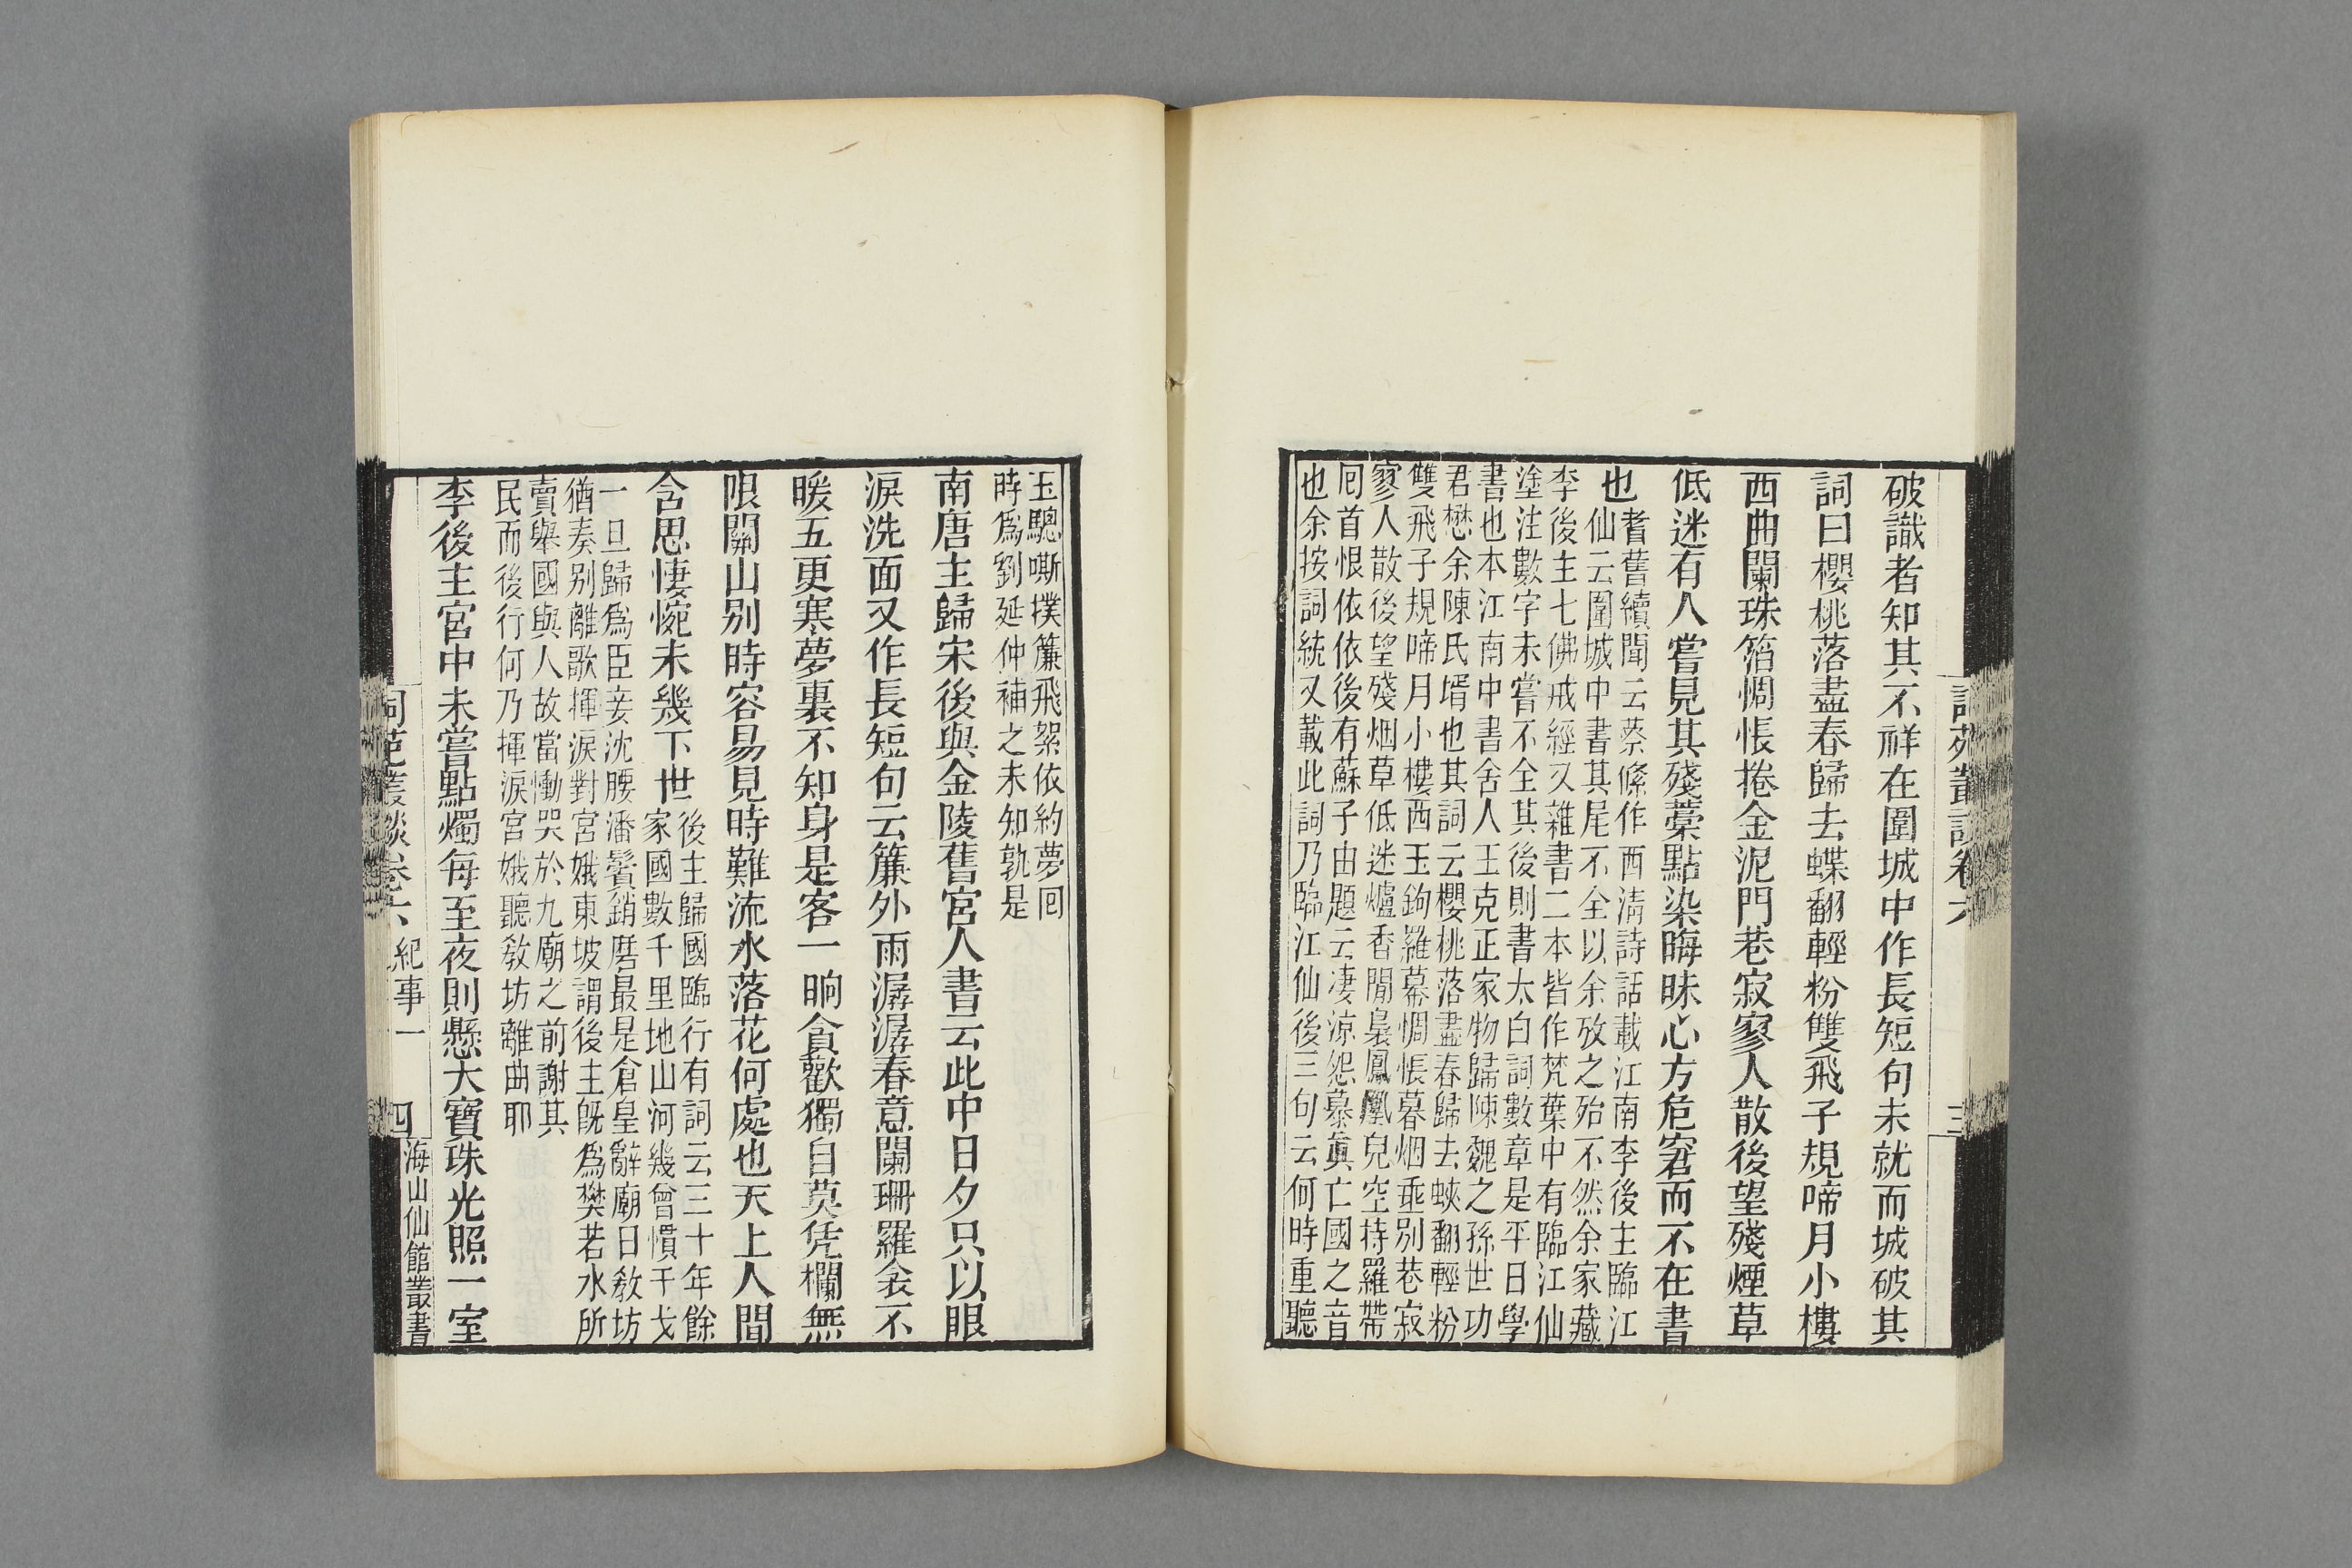 詞苑叢談卷六
三
破識者知其不祥在圍城中作長短句未就而城破其
詞曰櫻桃落盡春歸去蝶翻輕粉雙飛子規啼月小樓
西曲闌珠箔惆悵捲金泥門巷寂寥人散後望殘煙草
低迷有人嘗見其殘藁點染晦昧心方危窘而不在書
也
耆舊續聞云蔡絛作西清詩話載江南李後主臨江
仙云圍城中書其尾不全以余攷之殆不然余家藏
李後主七佛戒經又雜書二本皆作梵葉中有臨江仙
塗注數字未嘗不全其後則書太白詞數章是平日學
書也本江南中書舍人王克正家物歸陳魏之孫世功
君懋余陳氏壻也其詞云櫻桃落盡春歸去蛺翻輕粉
雙飛子規啼月小樓西玉鉤羅幕惆悵暮烟垂別巷寂
寥人散後望殘烟草低迷爐香閒裊鳳凰兒空持羅帶
囘首恨依依後有蘇子由題云凄涼怨慕眞亡國之音
也余按詞統又載此詞乃臨江仙後三句云何時重聽
玉驄嘶撲簾飛絮依約夢囘
時爲劉延仲補之未知孰是
南唐主歸宋後與金陵舊宮人書云此中日夕只以眼
淚洗面又作長短句云簾外雨潺潺春意闌珊羅衾不
暖五更寒夢裏不知身是客一晌貪歡獨自莫凭欄無
限關山別時容易見時難流水落花何處也天上人間
含思悽惋未幾下世
後主歸國臨行有詞云三十年餘
家國數千里地山河幾曾慣干戈
一旦歸爲臣妾沈腰潘鬢銷磨最是倉皇辭廟日敎坊
猶奏別離歌揮淚對宮娥東坡謂後主旣爲樊若水所
賣舉國與人故當慟哭於九廟之前謝其
民而後行何乃揮淚宮娥聽敎坊離曲耶
李後主宮中未嘗點燭每至夜則懸大寶珠光照一室
詞苑叢談卷六 紀事一
四
海山仙館叢書